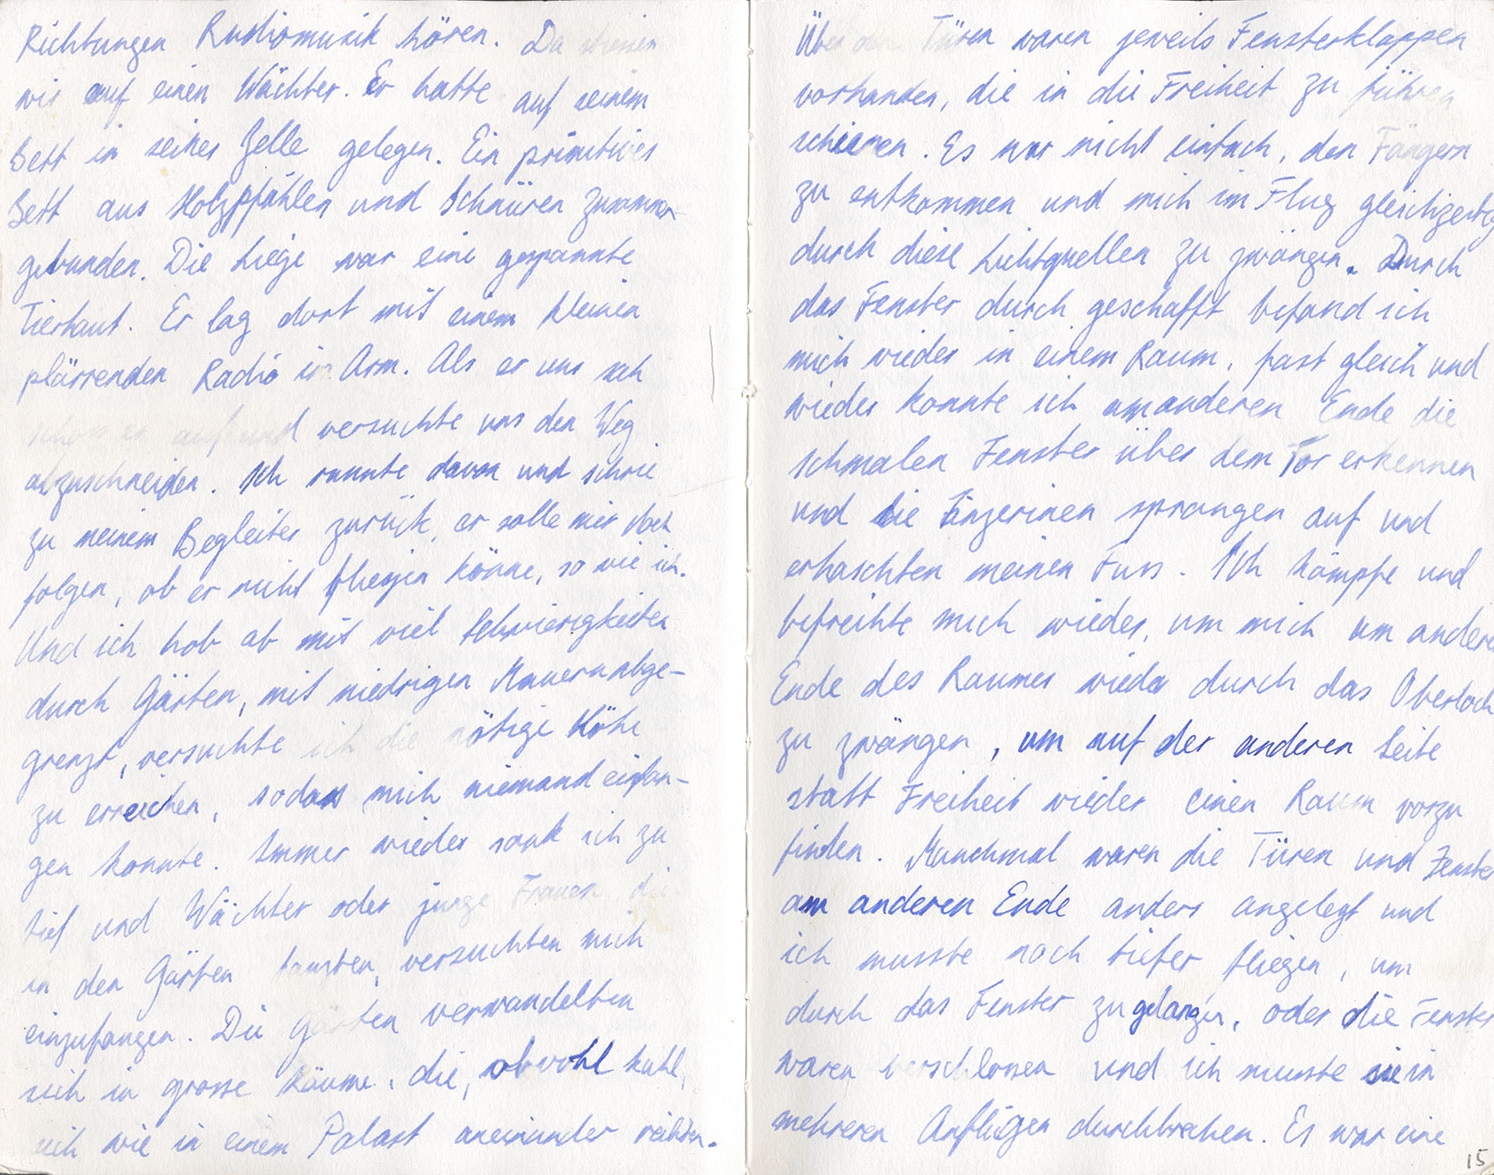 Richtungen Radiomusik hören. Da stiessen
wir auf einen Wächter. Er hatte auf seinem
Bett in seiner Zelle gelegen. Ein primitives
Bett aus Holzpfählen und Schnüren zusammen
gebunden. Die Liege war eine gespannte
Tierhaut. Er lag dort mit einem kleinen
plärrenden Radio im Arm. Als er uns sah
schoss er auf und versuchte uns den Weg
abzuschneiden. Ich rannte davon und schrie
zu meinem Begleiter zurück, er solle mir doch
folgen, ob er nicht fliegen könne, so wie ich.
Und ich hob ab mit viel Schwierigkeiten
durch Gärten, mit niedrigen Mauern abge-
grenzt, versuchte ich die nötige Höhe
zu erreichen, sodass mich niemand einfan-
gen konnte. Immer wieder sank ich zu
tief und Wächter oder junge Frauen, die
in den Gärten tanzten, versuchten mich
einzufangen. Die Gärten verwandelten
sich in grosse Räume, die, obwohl kahl,
sich wie in einem Palast aneinander reihten.
Über den Türen waren jeweils Fensterklappen
vorhanden, die in die Freiheit zu führen
schienen. Es war nicht einfach, den Fängern
zu entkommen und mich im Flug gleichzeitig
durch diese Lichtquellen zu zwängen. Durch
das Fenster durch geschafft befand ich
mich wieder in einem Raum, fast gleich und
wieder konnte ich am anderen Ende die
schmalen Fenster über dem Tor erkennen
und die Tänzerinen sprangen auf und
erhaschten meinen Fuss. Ich kämpfe und
befreihte mich wieder, um mich am anderen
Ende des Raumes wieder durch das Oberloch
zu zwängen, um auf der anderen Seite
statt Freiheit wieder einen Raum vorzu
finden. Manchmal waren die Türen und Fenster
am anderen Ende anders angelegt und
ich musste noch tiefer fliegen, um
durch das Fenster zu gelangen, oder die Fenster
waren verschlossen und ich musste sie in
mehreren Anflügen durchbrechen. Es war eine
15